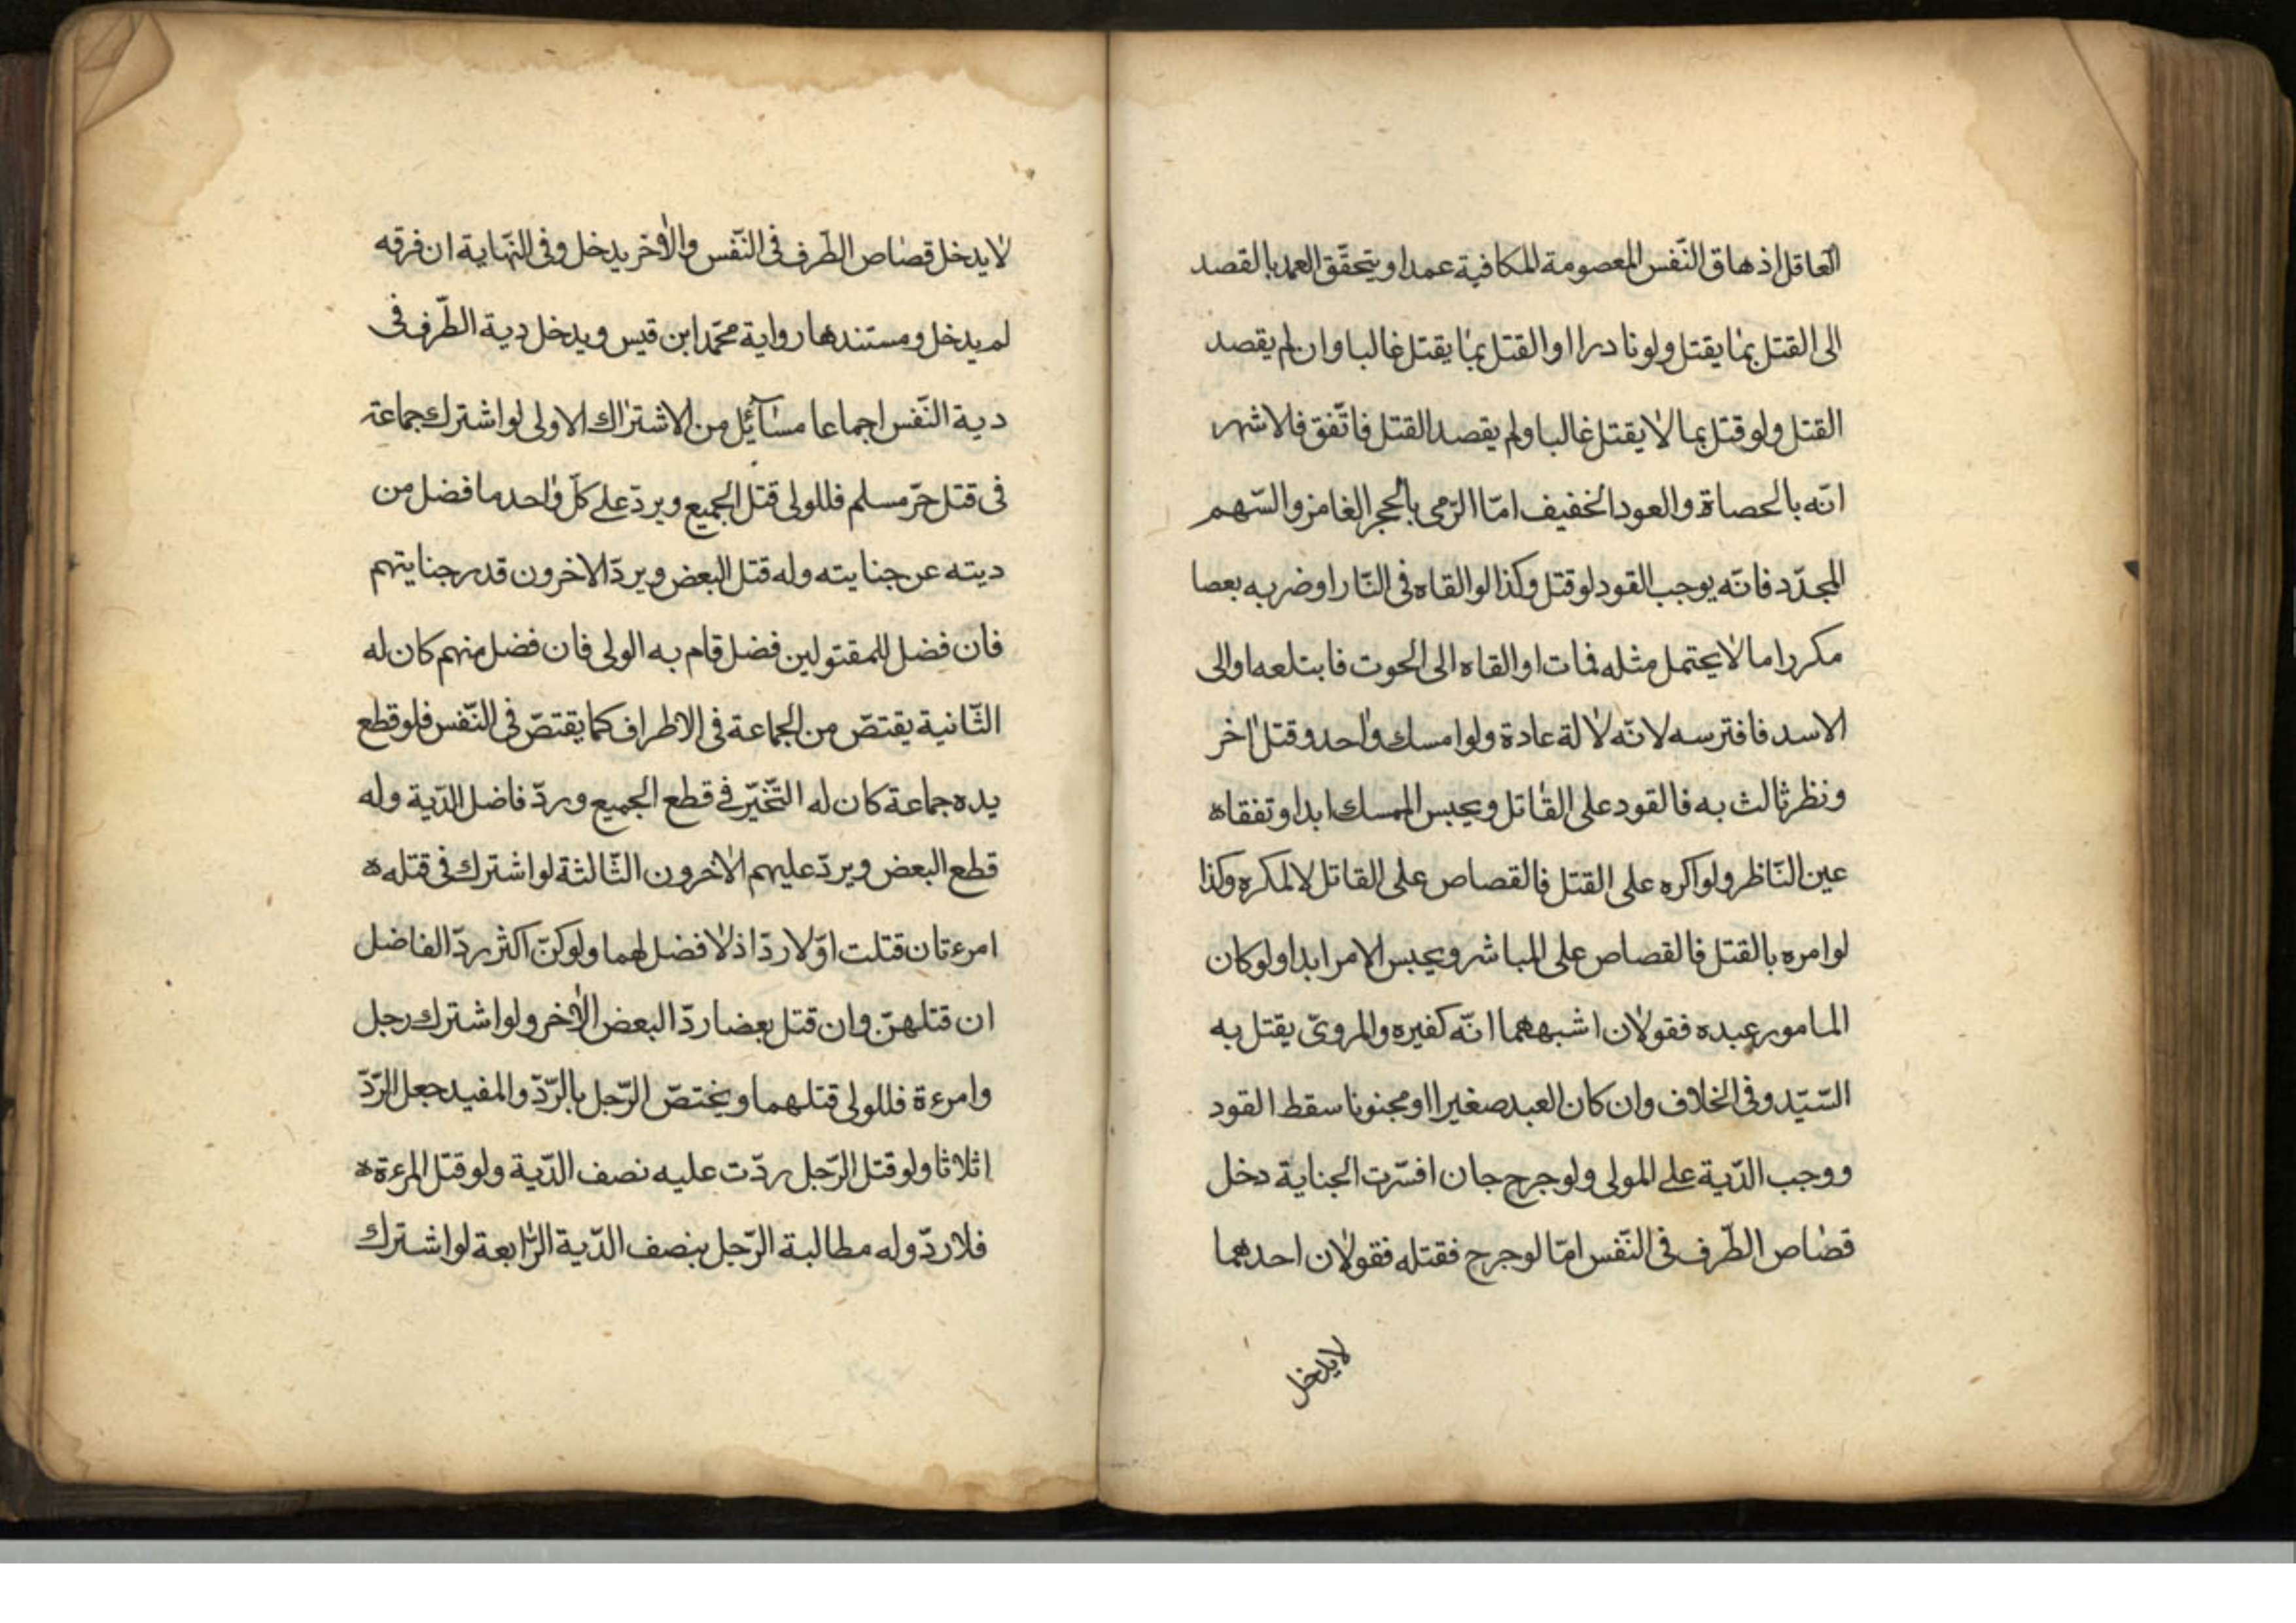 العاقل اذهاق النّفس المعصومة المكافية عمدا و يتحقّق العمد بالقصد
الى القتل بما يقتل ولو نادرا او القتل بما يقتل غالبا وان لم يقصد
القتل ولو قتل بما لا يقتل غالبا ولم يقصد القتل فاتّفق فالاشهر
انّه بالحصاة والعود الخفيف امّا الرّمى بالحجر الغامز والسّهم
المحدّد فانّه يوجب القود لو قتل وكذا لو القاه فى النّار او ضربه بعصا
مكررا ما لا يحتمل مثله فمات او القاه الى الحوت فابتلعه او الى
الاسد فافترسه لانّه لالة عادة ولو امسك واحد وقتل اخر
ونظر ثالث به فالقود على القاتل ويحبس الممسك ابدا وتفقاه
عين النّاظر ولو اكره على القتل فالقصاص على القاتل لا لمكره وكذا
لو امره بالقتل فالقصاص على المباشر ويحبس الامر ابدا ولو كان
المامور عبده فقولان اشبههما انّه كغيره والمروىّ يقتل به
السّيّد وفى الخلاف وان كان العبد صغيرا او مجنونا سقط القود
ووجب الدّية على المولى ولو جرح جان افسّرت الجناية دخل
قصاص الطّرف فى النّفس امّا لو جرح فقتله فقولان احدهما
لا يدخل
لا يدخل قصاص الطّرف فى النّفس والاخر يدخل وفى النّهاية ان فرقه
لم يدخل ومستندها رواية محمّد ابن قيس ويدخل دية الطّرف فى
دية النّفس اجماعا مسآئل من الاشتراك الاولى لو اشترك جماعة
فى قتل حرّ مسلم فللولى قتل الجميع ويردّ على كلّ واحد ما فضل من
ديته عن جنايته وله قتل البعض ويردّ الاخرون قدر جنايتهم
فان فضل للمقتولين فضل قام به الولى فان فضل منهم كان له
الثّانية يقتصّ من الجماعة فى الاطراف كما يقتصّ فى النّفس فلو قطع
يده جماعة كان له التّخيّر فى قطع الجميع وردّ فاضل الدّية وله
قطع البعض ويردّ عليهم الاخرون الثّالثة لو اشترك فى قتله ه
امرءتان قتلت اوّلا ردّ اذ لا فضل لهما ولو كنّ اكثر ردّ الفاضل
ان قتلهنّ وان قتل بعضا ردّ البعض الاخر ولو اشترك رجل
وامرءة فللولى قتلهما ويختصّ الرّجل بالرّدّ والمفيد جعل الرّدّ
اثلاثا ولو قتل الرّجل ردّت عليه نصف الدّية ولو قتل المرءة ه
فلا ردّ وله مطالبة الرّجل بنصف الدّية الرّابعة لو اشترك